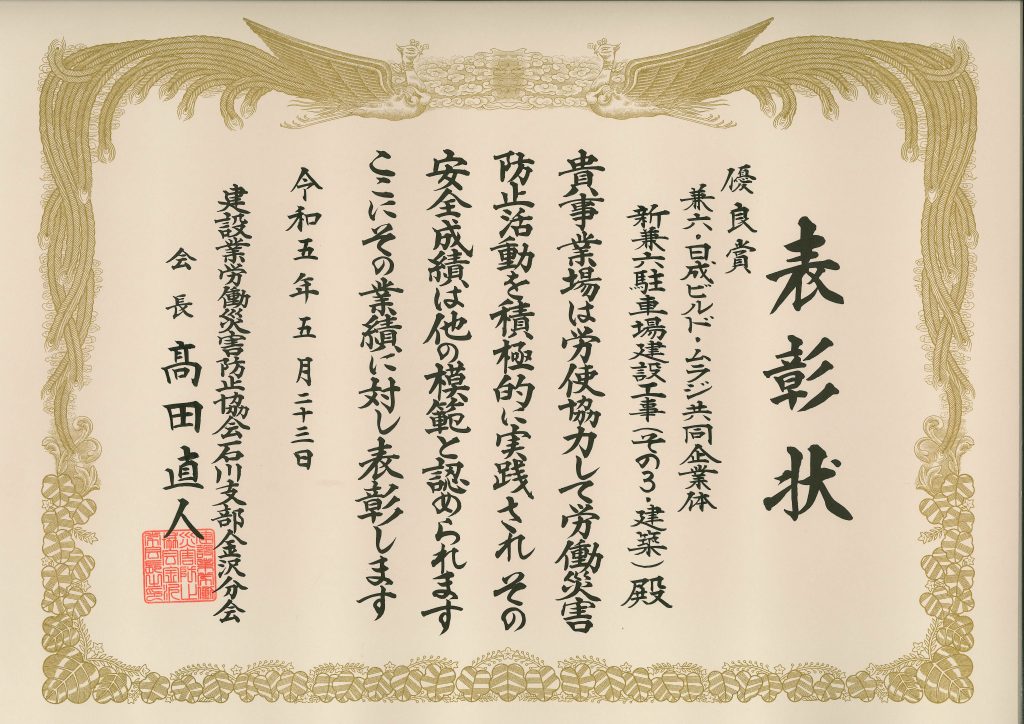 表彰状
優良賞
兼六・日成ビルド・ムラジ共同企業体
新兼六駐車場建設工事(その3・建築)殿
貴事業場は労使協力して労働災害
防止活動を積極的に実践され その
安全成績は他の模範と認められます
ここにその業績に対し表彰します
令和五年五月二十三日
建設業労働災害防止協会石川支部金沢分会
会長 髙田直人